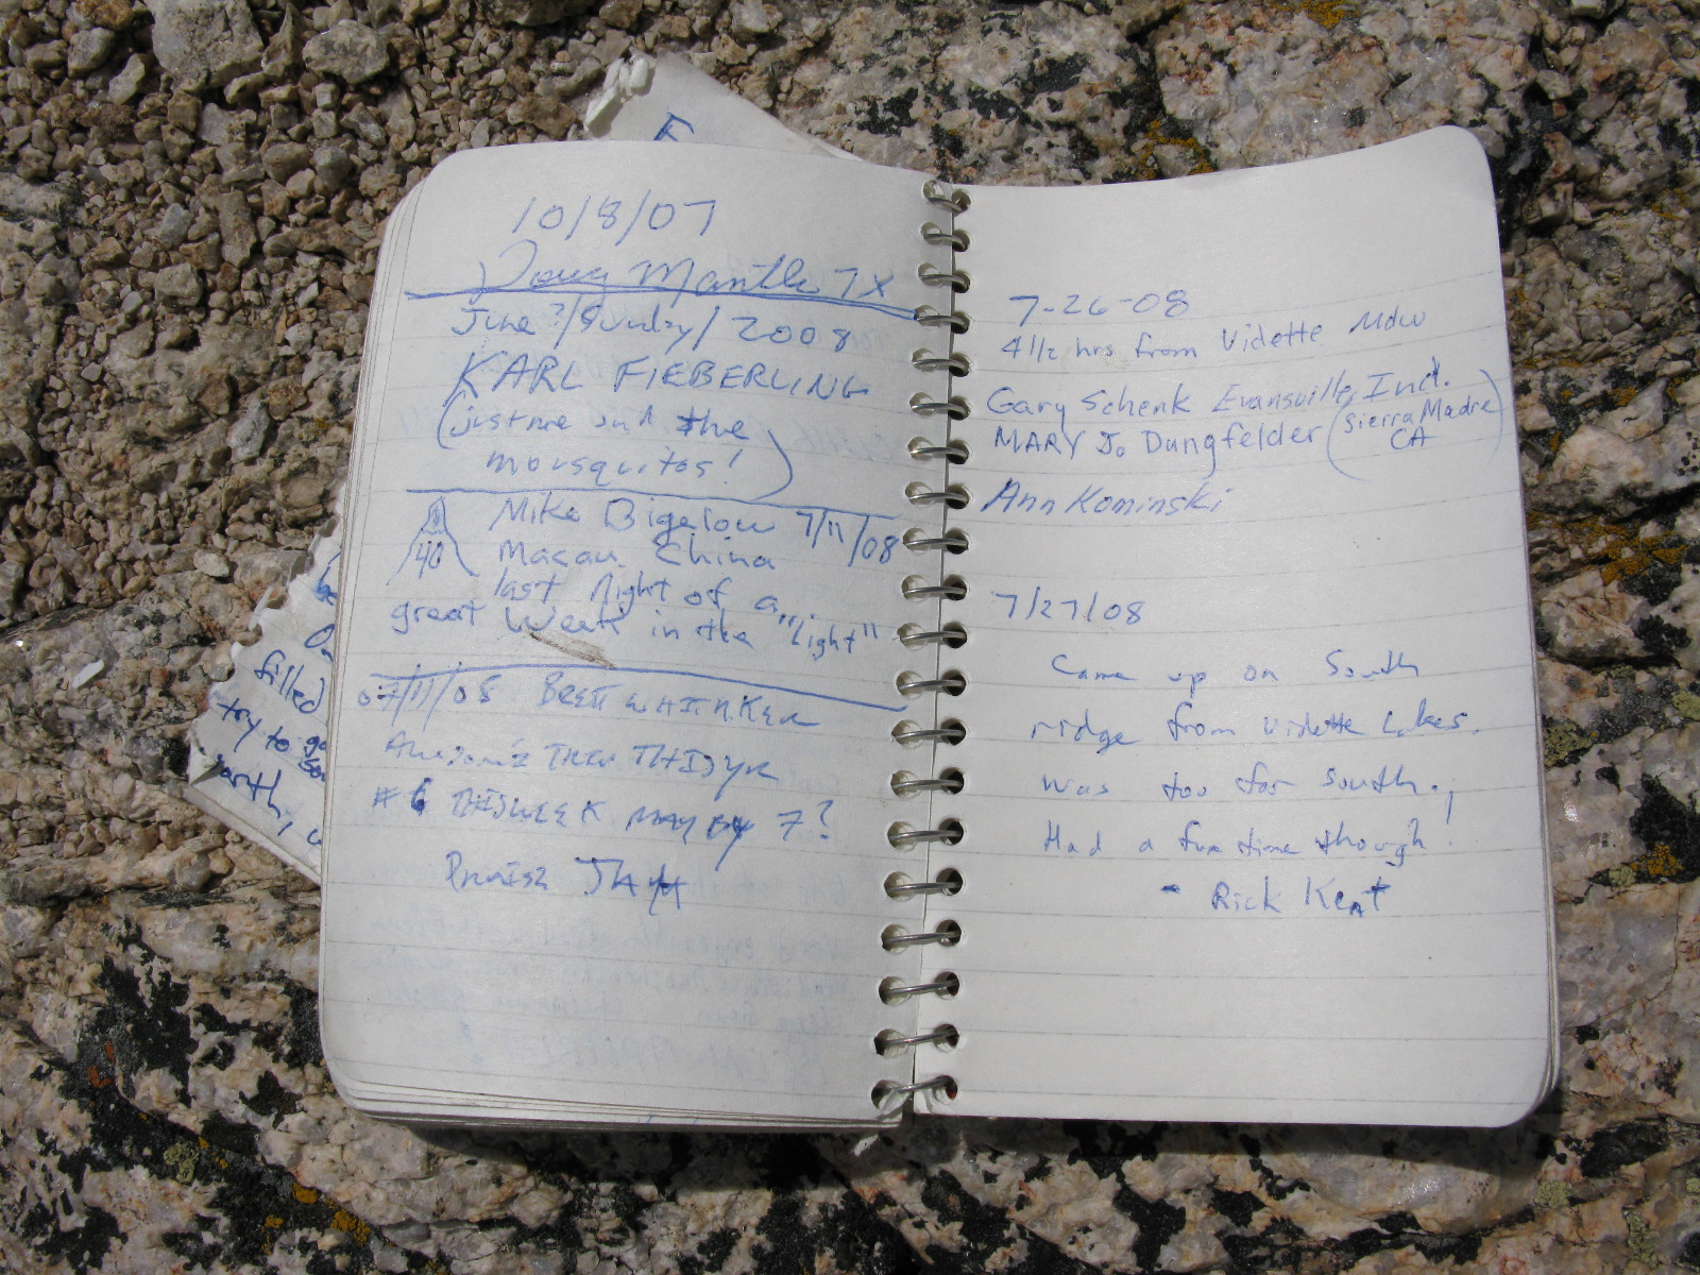 10/8/07
Doug Mantle 7X
June ?/Sunday/2008
KARL FIEBERLING
(just me and the
mousquitos!)
Mike Bigelow 7/11/08
40
Macau, China
last night of a
great week in the "light"
07/11/08 BRETT WHITAKER
THIS YR
#6 THIS WEEK MAYBY 7?
PRAISE JAH
7-26-08
4 1/2 hrs from Vidette Mdw
Gary Schenk Evansville, Ind.
MARY Jo Dungfelder (Sierra Madre
CA)
Ann Kominski
7/27/08
Came up on South
ridge from Vidette Lakes.
Was too far south.
Had a fun time though!
- Rick Kent
filled
try to